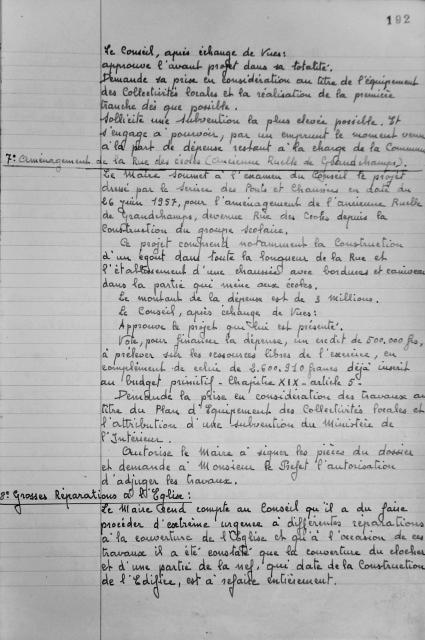 192
Le Conseil, après échange de Vues:
approuve l'avant projet dans sa totalité.
Demande sa prise en considération au titre de l'équipement
des Collectivités locales et la réalisation de la première
tranche dès que possible.
Sollicite une subvention la plus elevée possible. Et
s'engage à pourvoir, par un emprunt le moment venu
à la part de dépense restant à la charge de la Commune
7° Aménagement de la Rue des écoles (Ancienne Ruelle de Grandchamps).
Le Maire soumet à l'examen du Conseil le projet
dressé par le service des Ponts et Chaussées en date du
26 juin 1957, pour l'aménagement de l'ancienne Ruelle
de Grandchamps, devenue Rue des Ecoles depuis la
Construction du groupe scolaire.
Ce projet comprend notamment la Construction
d'un égout dans toute la longueur de la Rue et
l'établissement d'une chaussée avec bordures et caniveaux
dans la partie qui mène aux écoles.
Le montant de la dépense est de 3 millions.
Le Conseil, après échange de Vues:
Approuve le projet qui lui est présenté.
Vote, pour financer la dépense, un crédit de 500.000 frs,
à prélever sur les ressources libres de l'exercice, en
complément de celui de 2.600.910 francs déjà inscrit
au budget primitif - Chapitre XIX - article 5.
Demande la prise en considération des travaux au
titre du Plan d'Equipement des Collectivités locales et
l'attribution d'une subvention du Ministère de
l'Intérieur.
Autorise le Maire à signer les pièces du dossier
et demande à Monsieur le Préfet l'autorisation
d'adjuger les travaux.
8° Grosses Réparations à l'Eglise:
Le Maire Rend compte au Conseil qu'il a du faire
procéder d'extrême urgence à différentes réparations
à la couverture de l'Eglise et qu'à l'occasion de ces
travaux il a été constaté que la couverture du clocher
et d'une partie de la nef, qui date de la Construction
de l'Edifice, est à refaire entièrement.